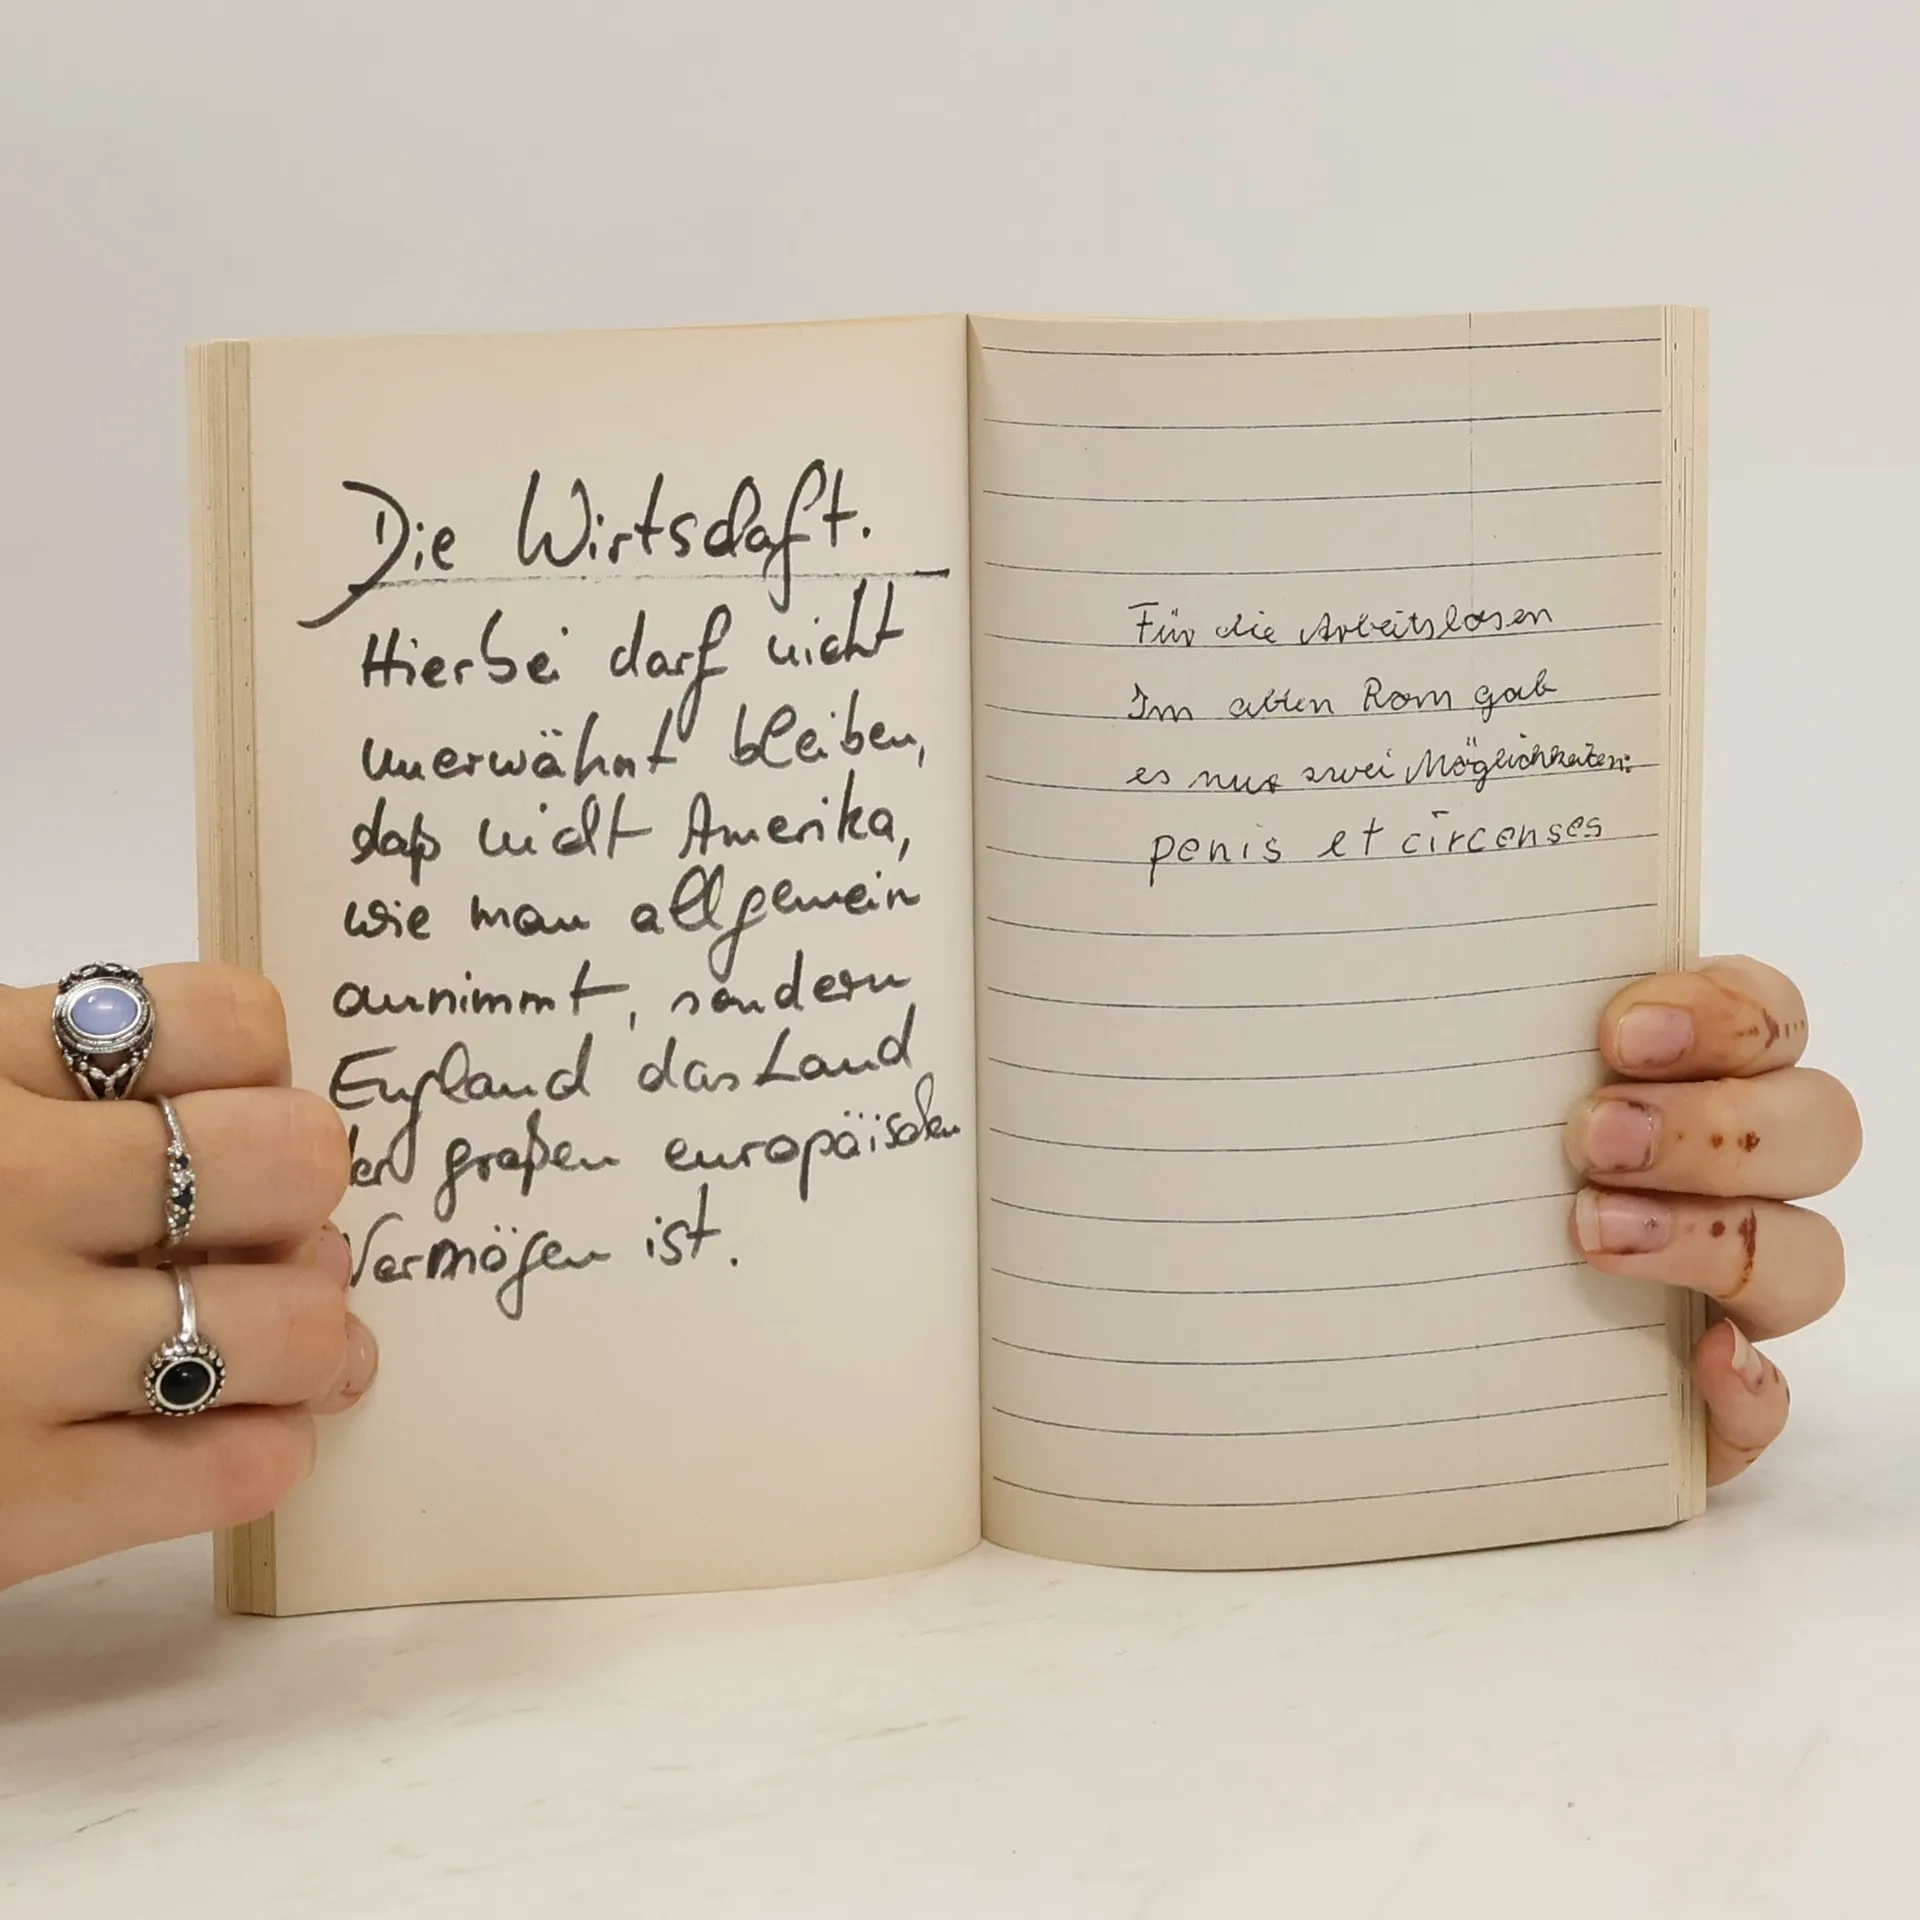 Die Wirtschaft.
Hierbei darf nicht
unerwähnt bleiben,
daß nicht Amerika,
wie man allgemein
annimmt, sondern
England das Land
der großen europäischen
Vermögen ist.
Für die Arbeitslosen
Im alten Rom gab
es nur zwei Möglichkeiten:
penis et circenses